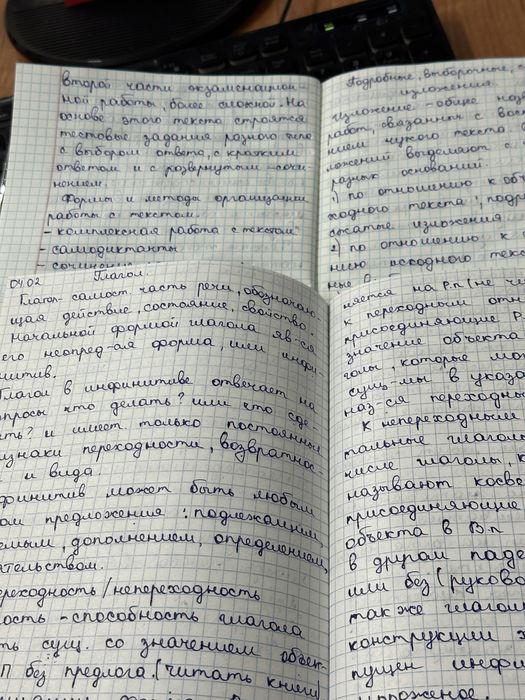 второй части экзаменацион-
ной работы, более сложной. На
основе этого текста строятся
тестовые задания разного типа
с выбором ответа, с кратким
ответом и с развернутым - сочи
нением.
Формы и методы организации
работы с текстом.
- комплексная работа с текстом
- самодиктанты
- сочинение
Подробные, выборочные, с
изложения.
изложение - общее наз
работ, связанных с вос
нием чужого текста.
ложений выделяют с
разных оснований.
1) по отношению к объ
ходного текста: подр
сжатые изложения
2) по отношению к
нию исходного текс
ные
04.02 Глагол.
Глагол - самост. часть речи, обозначаю
щая действие, состояние, свойство.
Начальной формой глагола яв-ся
его неопред-ая форма, или инфи-
нитив.
Глагол в инфинитиве отвечает на
просы что делать? или что сде-
ть? и имеет только постоянные
изнаки переходности, возвратнос-
и вида.
финитив может быть любым
ом предложения: подлежащим,
емым, дополнением, определением,
ательством.
ереходность/непереходность
ость - способность глагола
ть сущ. со значением объек-
П без предлога. (читать книги)
яется на Р.п (не чи
к переходным отн
присоединяющие Р.
значение объекта
голы, которые мо
сущ-мы в указа
наз-ся переходны
К непереходным
тальные глаголы
числе глаголы, к
называют косве
присоединяющие
объекта в В.п
в другом паде
или без (руково
также глагол
конструкции х
пущен инфи